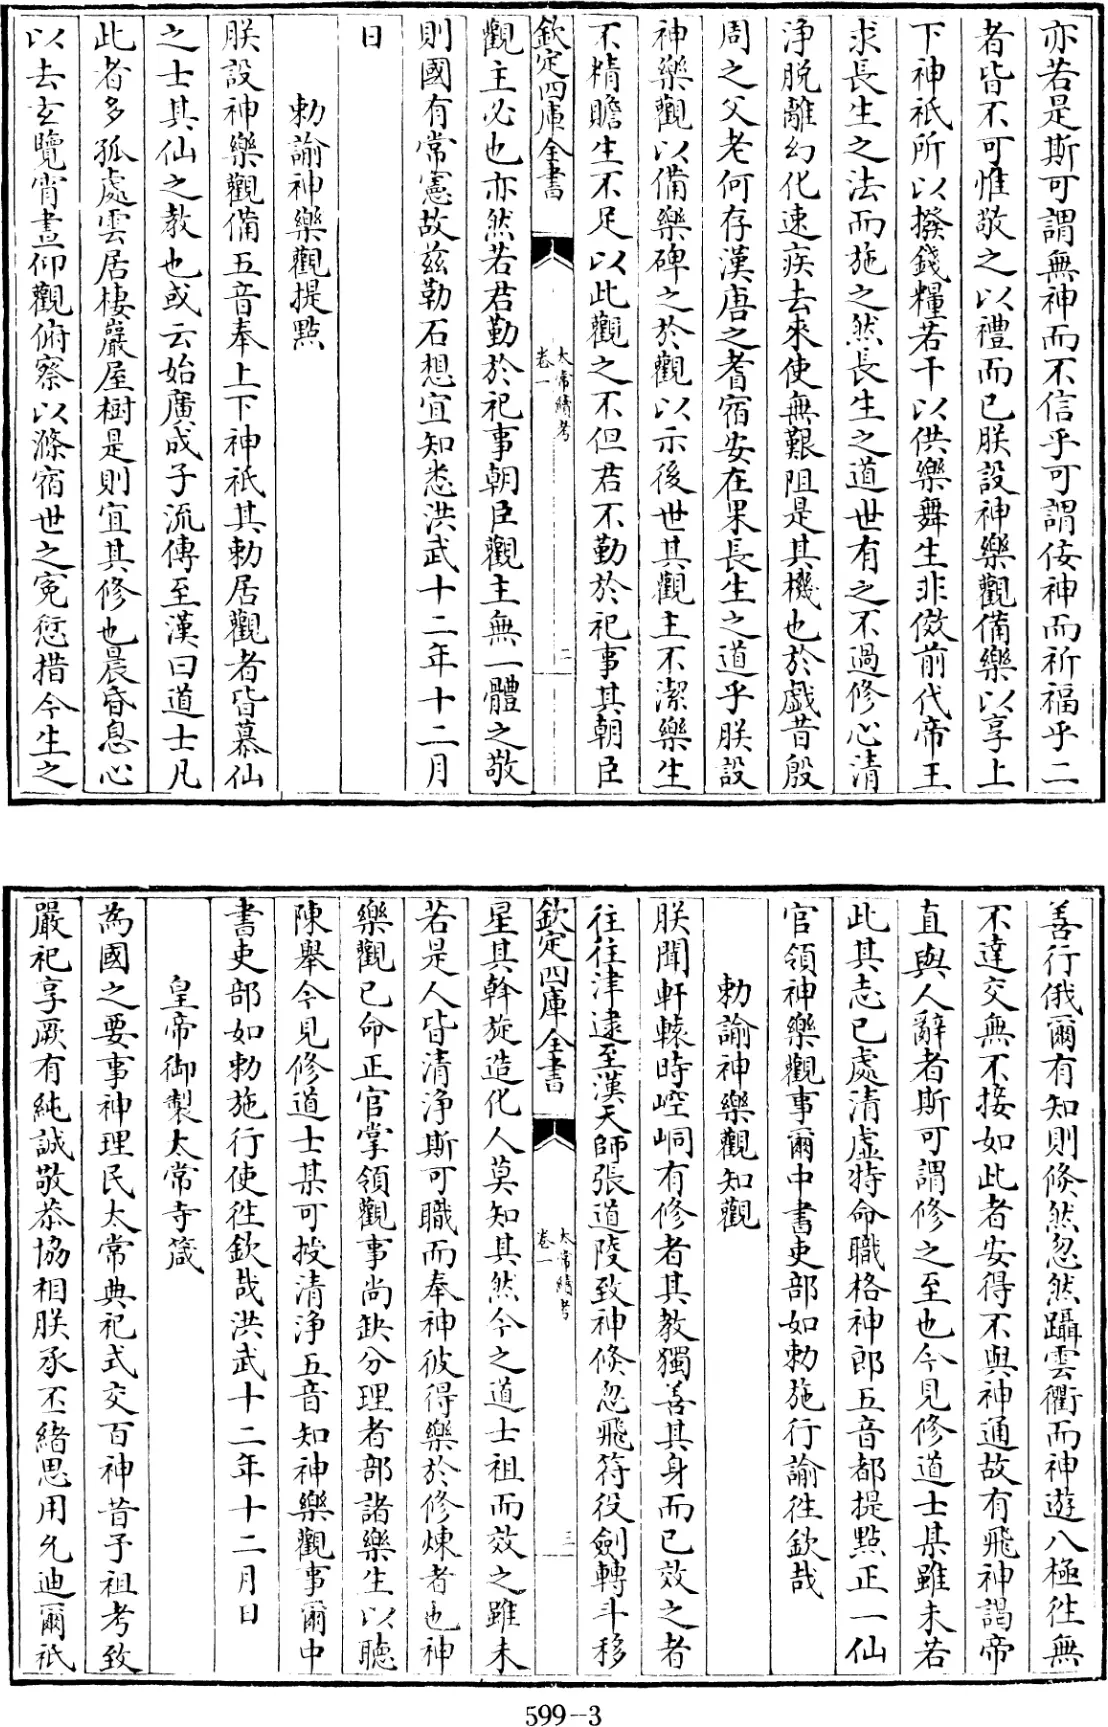 亦若是斯可謂無神而不信乎可謂佞神而祈福乎二
者皆不可惟敬之以禮而已朕設神樂觀備樂以享上
下神祇所以撥錢糧若干以供樂舞生非倣前代帝王
求長生之法而施之然長生之道世有之不過修心清
淨脫離幻化速疾去來使無艱阻是其機也於戲昔殷
周之父老何存漢唐之耆宿安在果長生之道乎朕設
神樂觀以備樂碑之於觀以示後世其觀主不潔樂生
不精贍生不足以此觀之不但君不勤於祀事其朝臣
欽定四庫全書
太常續考
卷一
二
觀主必也亦然若君勤於祀事朝臣觀主無一體之敬
則國有常憲故兹勒石想宜知悉洪武十二年十二月
日
勅諭神樂觀提點
朕設神樂觀備五音奉上下神祇其勅居觀者皆慕仙
之士其仙之教也或云始廣成子流傳至漢曰道士凡
此者多孤處雲居棲巖屋樹是則宜其修也晨昏息心
以去玄覽宵晝仰觀俯察以滌宿世之寃愆措今生之
善行俄爾有知則倐然忽然躡雲衢而神遊八極徃無
不達交無不接如此者安得不與神通故有飛神謁帝
直與人辭者斯可謂修之至也今見修道士某雖未若
此其志已處清虛特命職格神郎五音都提點正一仙
官領神樂觀事爾中書吏部如勅施行諭徃欽哉
勅諭神樂觀知觀
朕聞軒轅時崆峒有修者其教獨善其身而已效之者
往往津逮至漢天師張道陵致神倐忽飛符役劍轉斗移
欽定四庫全書
太常續考
卷一
三
星其斡旋造化人莫知其然今之道士祖而效之雖未
若是人皆清淨斯可職而奉神彼得樂於修煉者也神
樂觀已命正官掌領觀事尚缺分理者部諸樂生以聽
陳舉今見修道士某可授清淨五音知神樂觀事爾中
書吏部如勅施行使徃欽哉洪武十二年十二月日
皇帝御製太常寺箴
為國之要事神理民太常典祀式交百神昔予祖考致
嚴祀享厥有純誠敬恭協相朕承丕緒思用允迪爾祇
599-3